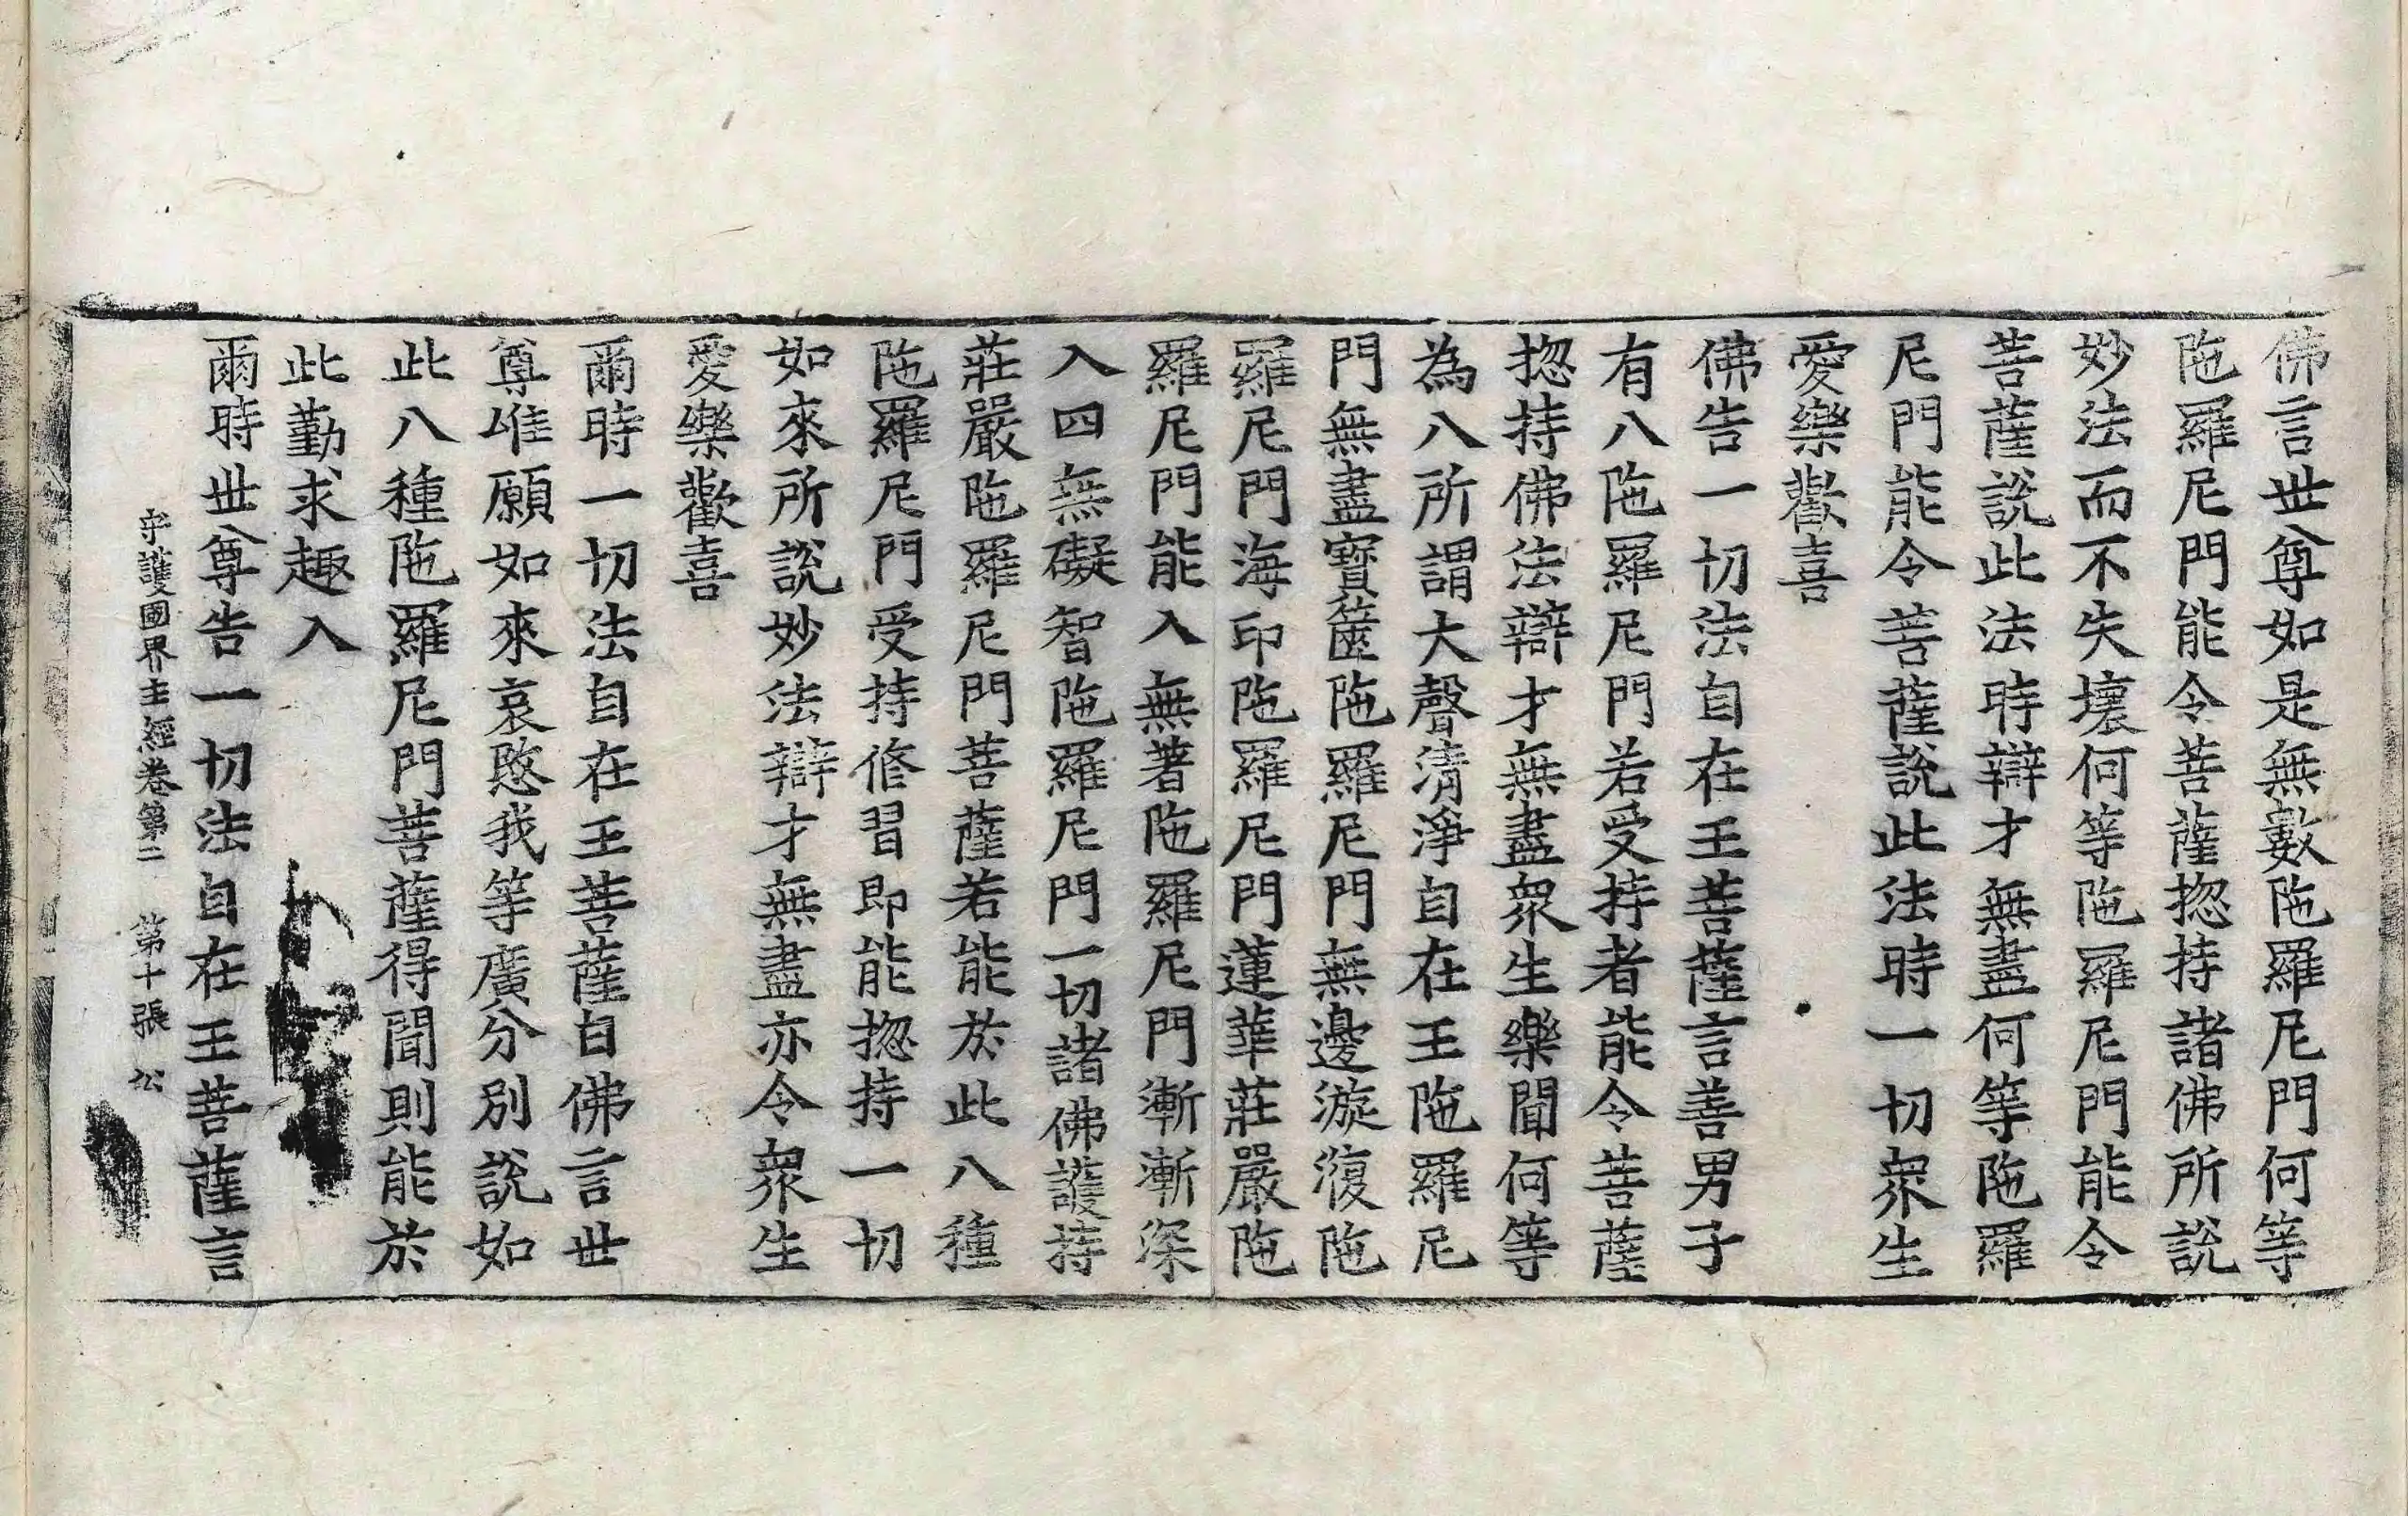 佛言世尊如是無數陁羅尼門何等
陁羅尼門能令菩薩揔持諸佛所說
妙法而不失壞何等陁羅尼門能令
菩薩說此法時辯才無盡何等陁羅
尼門能令菩薩說此法時一切衆生
愛樂歡喜
佛告一切法自在王菩薩言善男子
有八陁羅尼門若受持者能令菩薩
揔持佛法辯才無盡衆生樂聞何等
為八所謂大聲清淨自在王陁羅尼
門無盡寶篋陁羅尼門無邊漩澓陁
羅尼門海印陁羅尼門蓮華莊嚴陁
羅尼門能入無著陁羅尼門漸漸深
入四無礙智陁羅尼門一切諸佛護持
莊嚴陁羅尼門菩薩若能於此八種
陁羅尼門受持修習即能揔持一切
如來所說妙法辯才無盡亦令衆生
愛樂歡喜
爾時一切法自在王菩薩白佛言世
尊唯願如來哀愍我等廣分別說如
此八種陁羅尼門菩薩得聞則能於
此勤求趣入
爾時世尊告一切法自在王菩薩言
守護國界主經卷第二 第十張 公